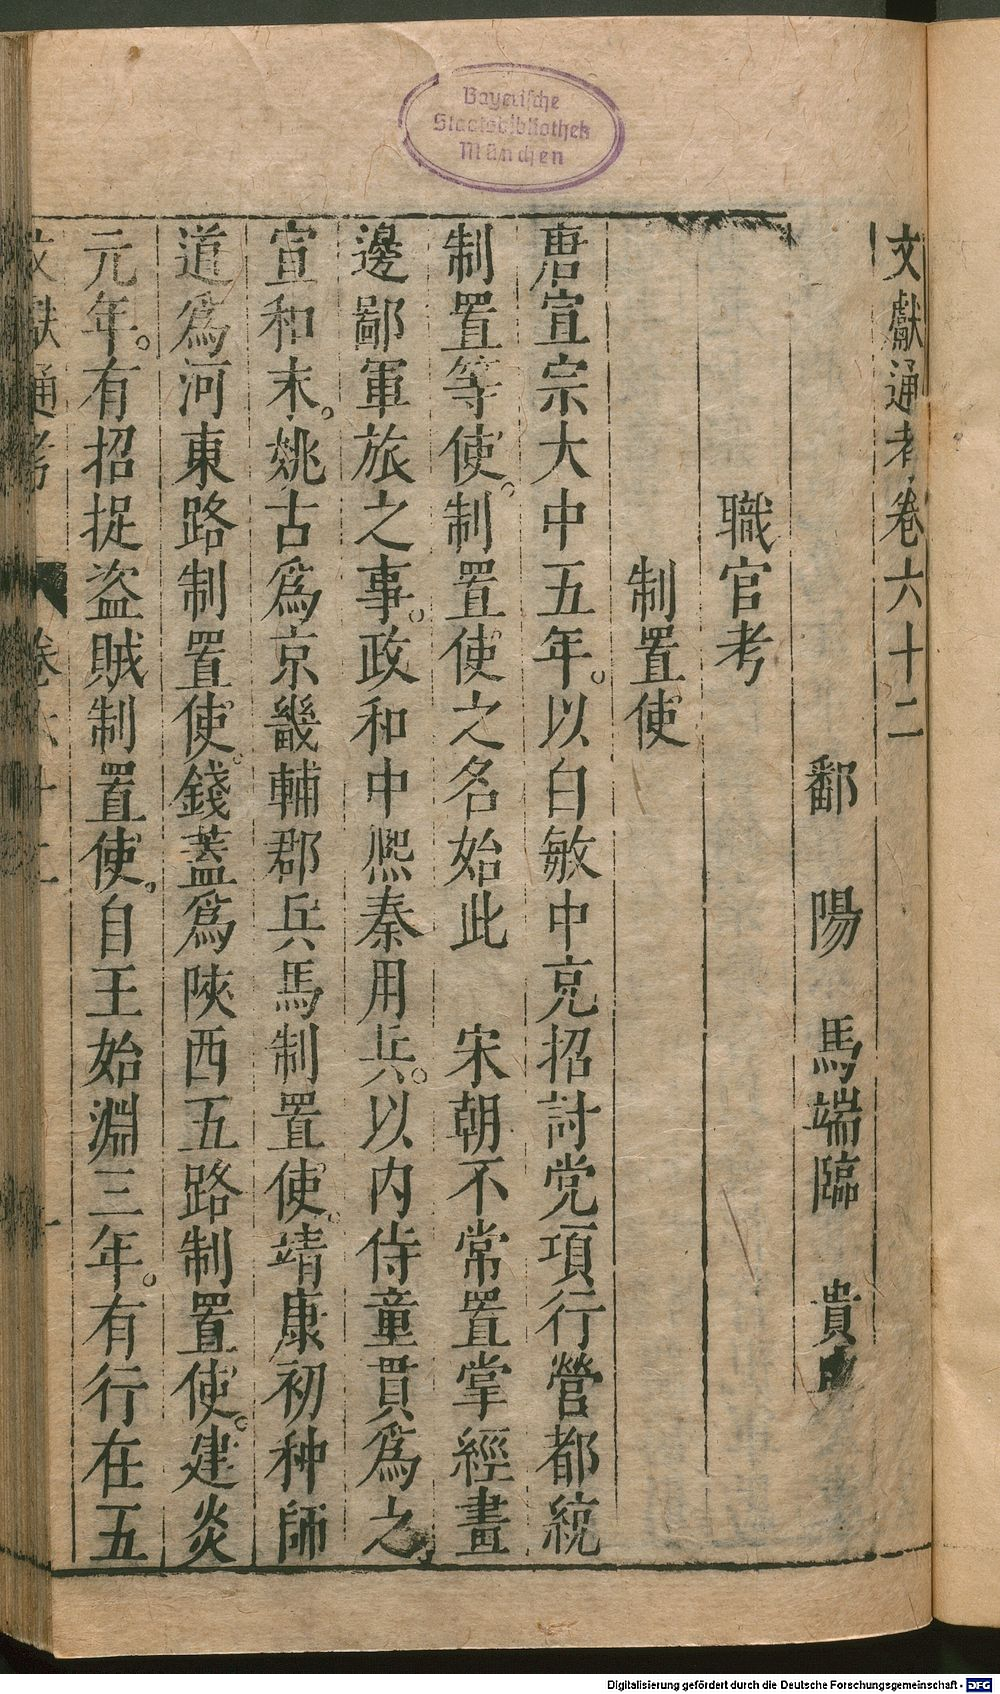 Bayerische
Staatsbibliothek
München
文獻通考卷六十二
鄱陽馬端臨貴
職官考
制置使
唐宣宗大中五年。以白敏中充招討党項行營都統
制置等使。制置使之名始此　宋朝不常置掌經畫
邊鄙軍旅之事。政和中熙秦用兵。以内侍童貫爲之
宣和末。姚古爲京畿輔郡兵馬制置使。靖康初种師
道爲河東路制置使。錢蓋爲陝西五路制置使。建炎
元年。有招捉盜賊制置使。自王始淵三年。有行在五
文獻通考
卷六十二
一
Digitalisierung gefördert durch die Deutsche Forschungsgemeinschaft - DFG